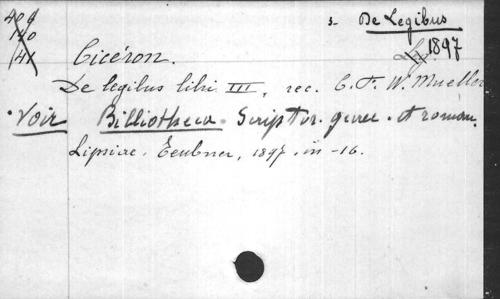 404
140
41
s. De Legibus
1897
Cicéron.
De legibus libri III, rec. C. F. W. Mueller
Voir Bibliotheca Scriptor. graec. et roman.
Lipsiae. Teubner, 1897. in-16.